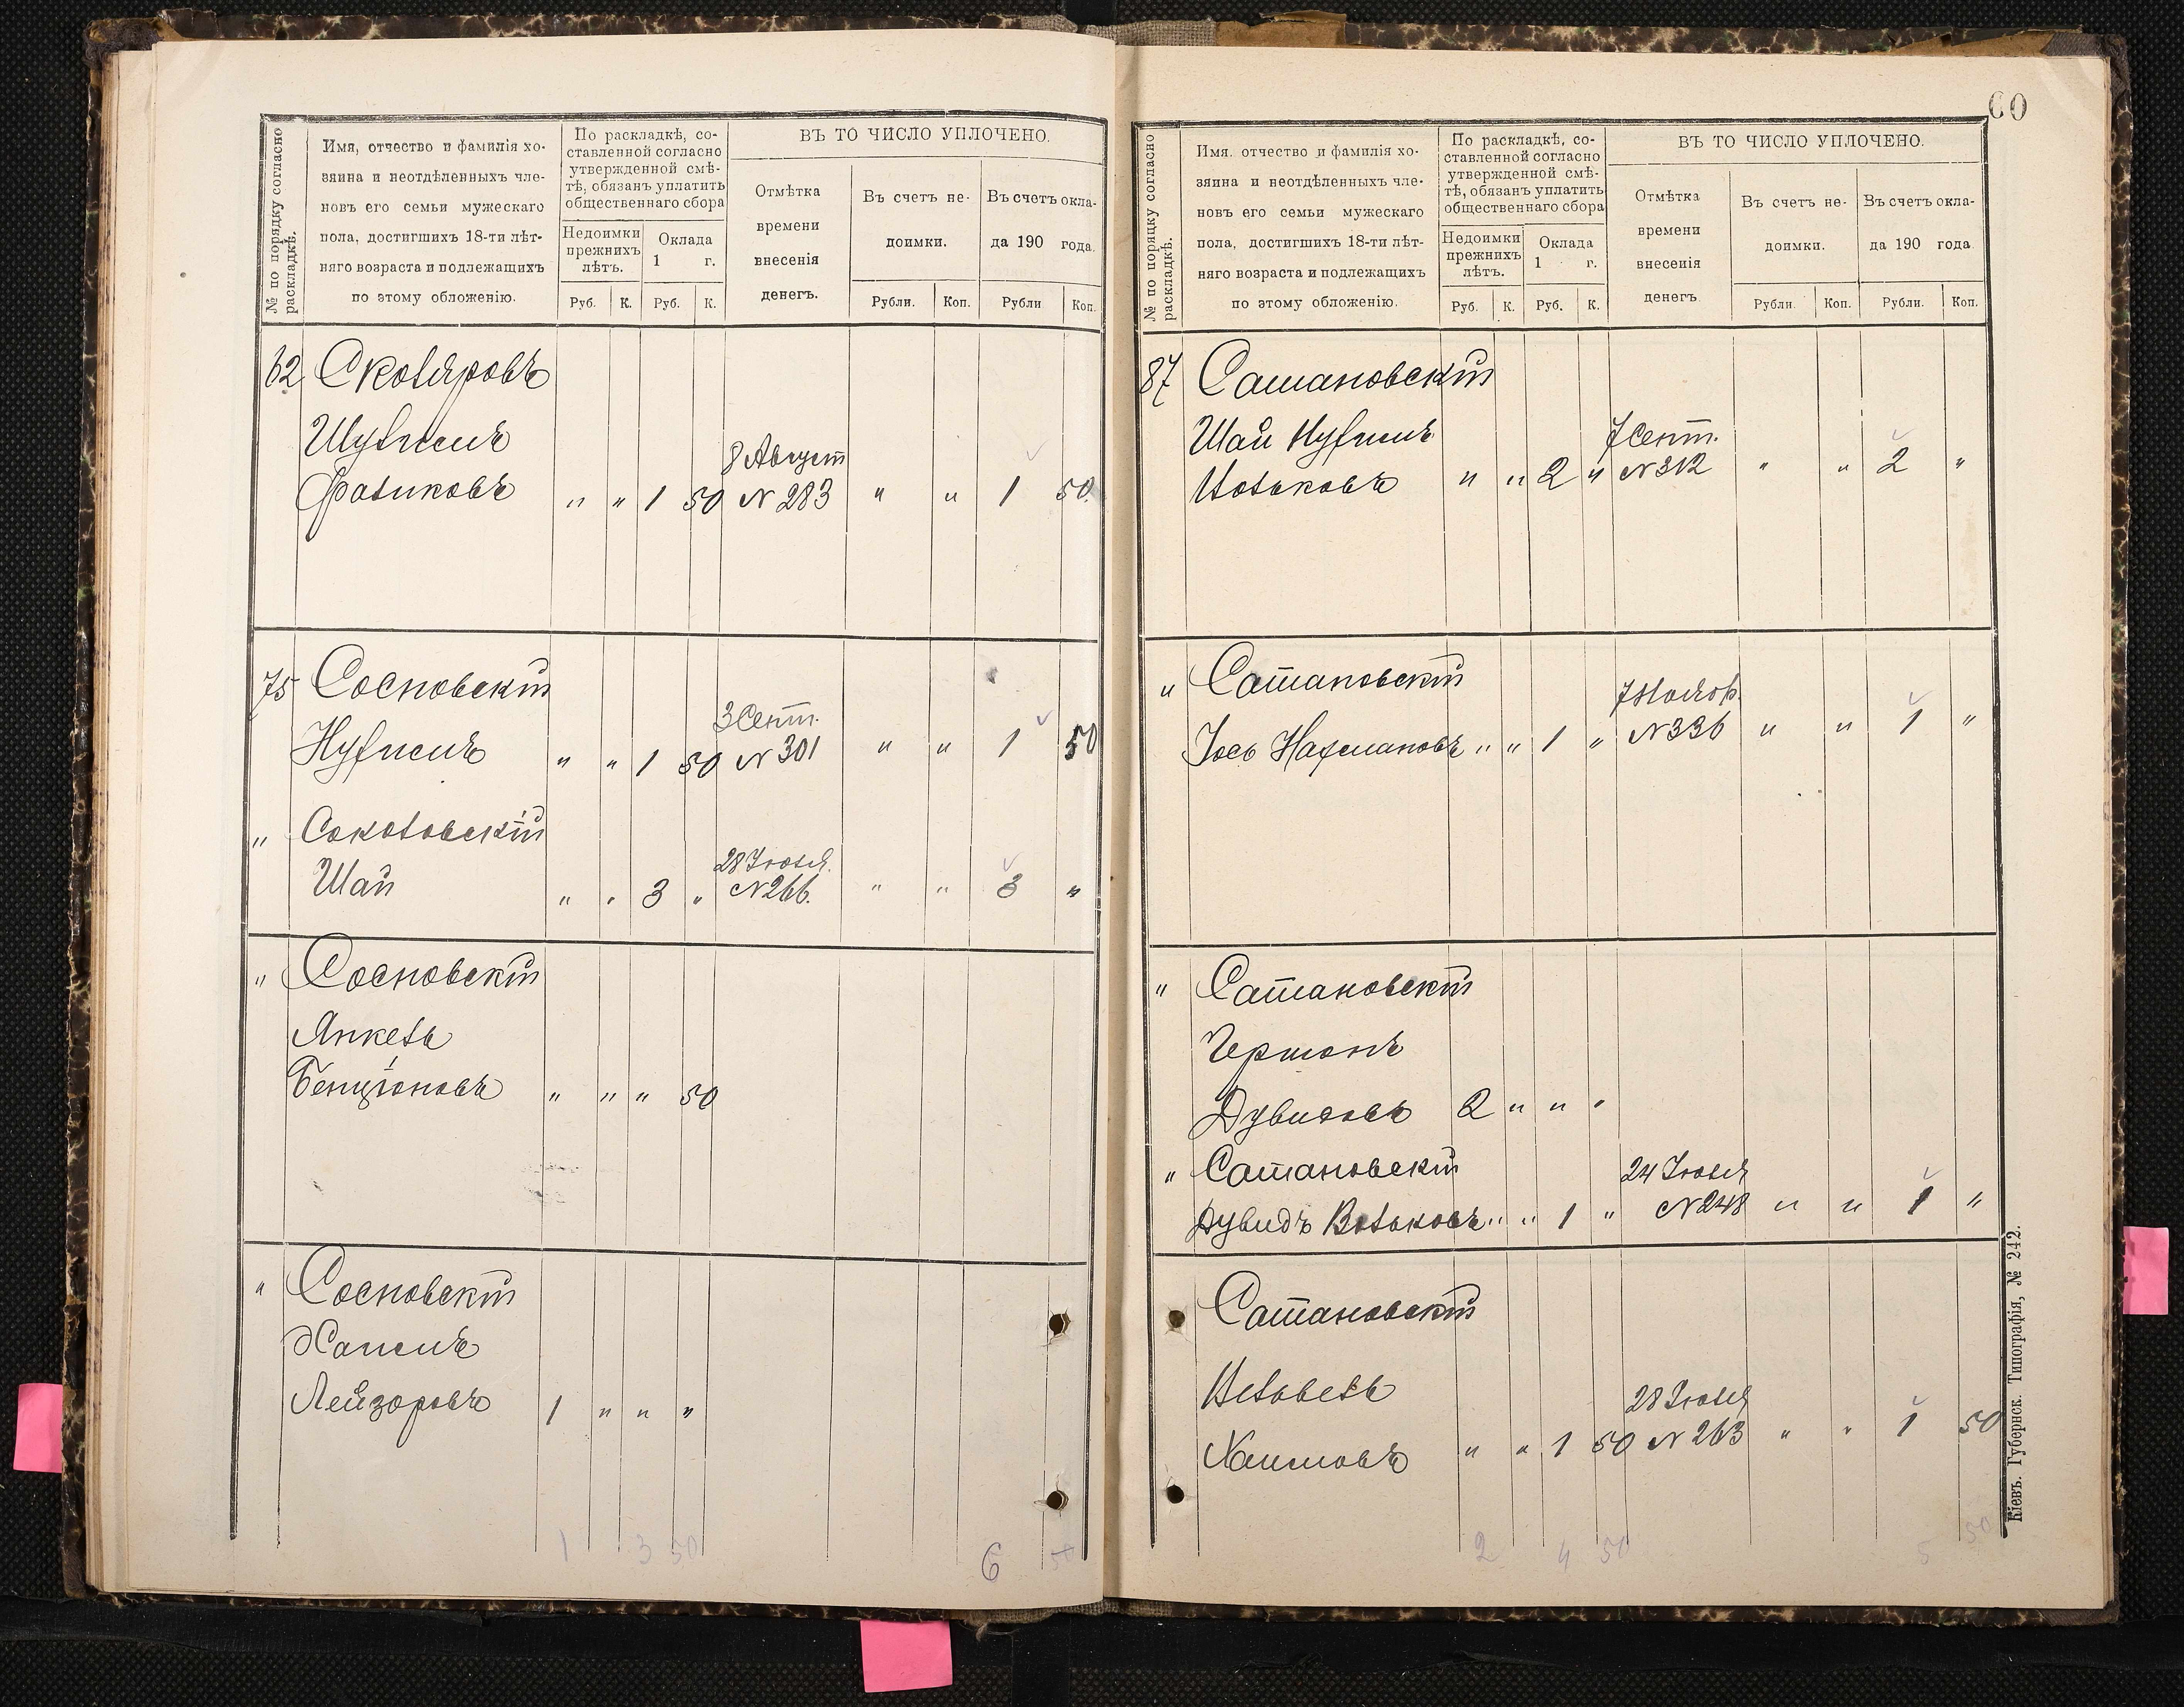 № по порядку согласно
раскладкѣ.
Имя, отчество и фамилія хо-
зяина и неотдѣленныхъ чле-
новъ его семьи мужескаго
пола, достигшихъ 18-ти лѣт-
няго возраста и подлежащихъ
по этому обложенію.
По раскладкѣ, со-
ставленной согласно
утвержденной смѣ-
тѣ, обязанъ уплатить
общественнаго сбора
Недоимки
прежнихъ
лѣтъ.
Оклада
1 г.
Руб. К. Руб. К.
ВЪ ТО ЧИСЛО УПЛОЧЕНО.
Отмѣтка
времени
внесенія
денегъ.
Въ счетъ не-
доимки.
Въ счетъ окла-
да 190 года.
Рубли. Коп. Рубли Коп.
62 Сколяровъ
8 Август
Фроликовъ " " 1 50 № 283 " " 1 50.
75 Сосновскій
3 Сент.
Нухимъ " " 1 50 № 301 " " 1 50
" Соколовскій
28 Іюля.
Шай " " 3 " № 266. " " 3 "
" Сосновскій
Янкель
Бенціоновъ " " " 50
" Сосновскій
Хаимъ
Лейзоровъ 1 " " "
1 3 50 6 50
60
№ по порядку согласно
раскладкѣ.
Имя. отчество и фамилія хо-
зяина и неотдѣленныхъ чле-
новъ его семьи мужескаго
пола, достигшихъ 18-ти лѣт-
няго возраста и подлежащихъ
по этому обложенію.
По раскладкѣ, со-
ставленной согласно
утвержденной смѣ-
тѣ, обязанъ уплатить
общественнаго сбора
Недоимки
прежнихъ
лѣтъ.
Оклада
1 г.
Руб. К. Руб. К.
ВЪ ТО ЧИСЛО УПЛОЧЕНО.
Отмѣтка
времени
внесенія
денегъ
Въ счетъ не-
доимки.
Въ счетъ окла-
да 190 года
Рубли. Коп. Рубли. Коп.
87 Сатановскій
Шай Нухимъ 7 Сент.
" " 2 " № 312 " " 2 "
" Сатановскій
7 Ноябр.
Іось Нахмановъ " " 1 " № 336 " " 1 "
" Сатановскій
Гершонъ
Дувидовъ 2 " " "
" Сатановскій 24 Іюля
Дувидъ Вольковъ " " 1 " № 248 " " 1 "
Сатановскій
28 Іюля
Хаимовъ " " 1 50 № 263 " " 1 50
2 4 50 5 50
Кіевъ. Губернск. Типографія, № 242.